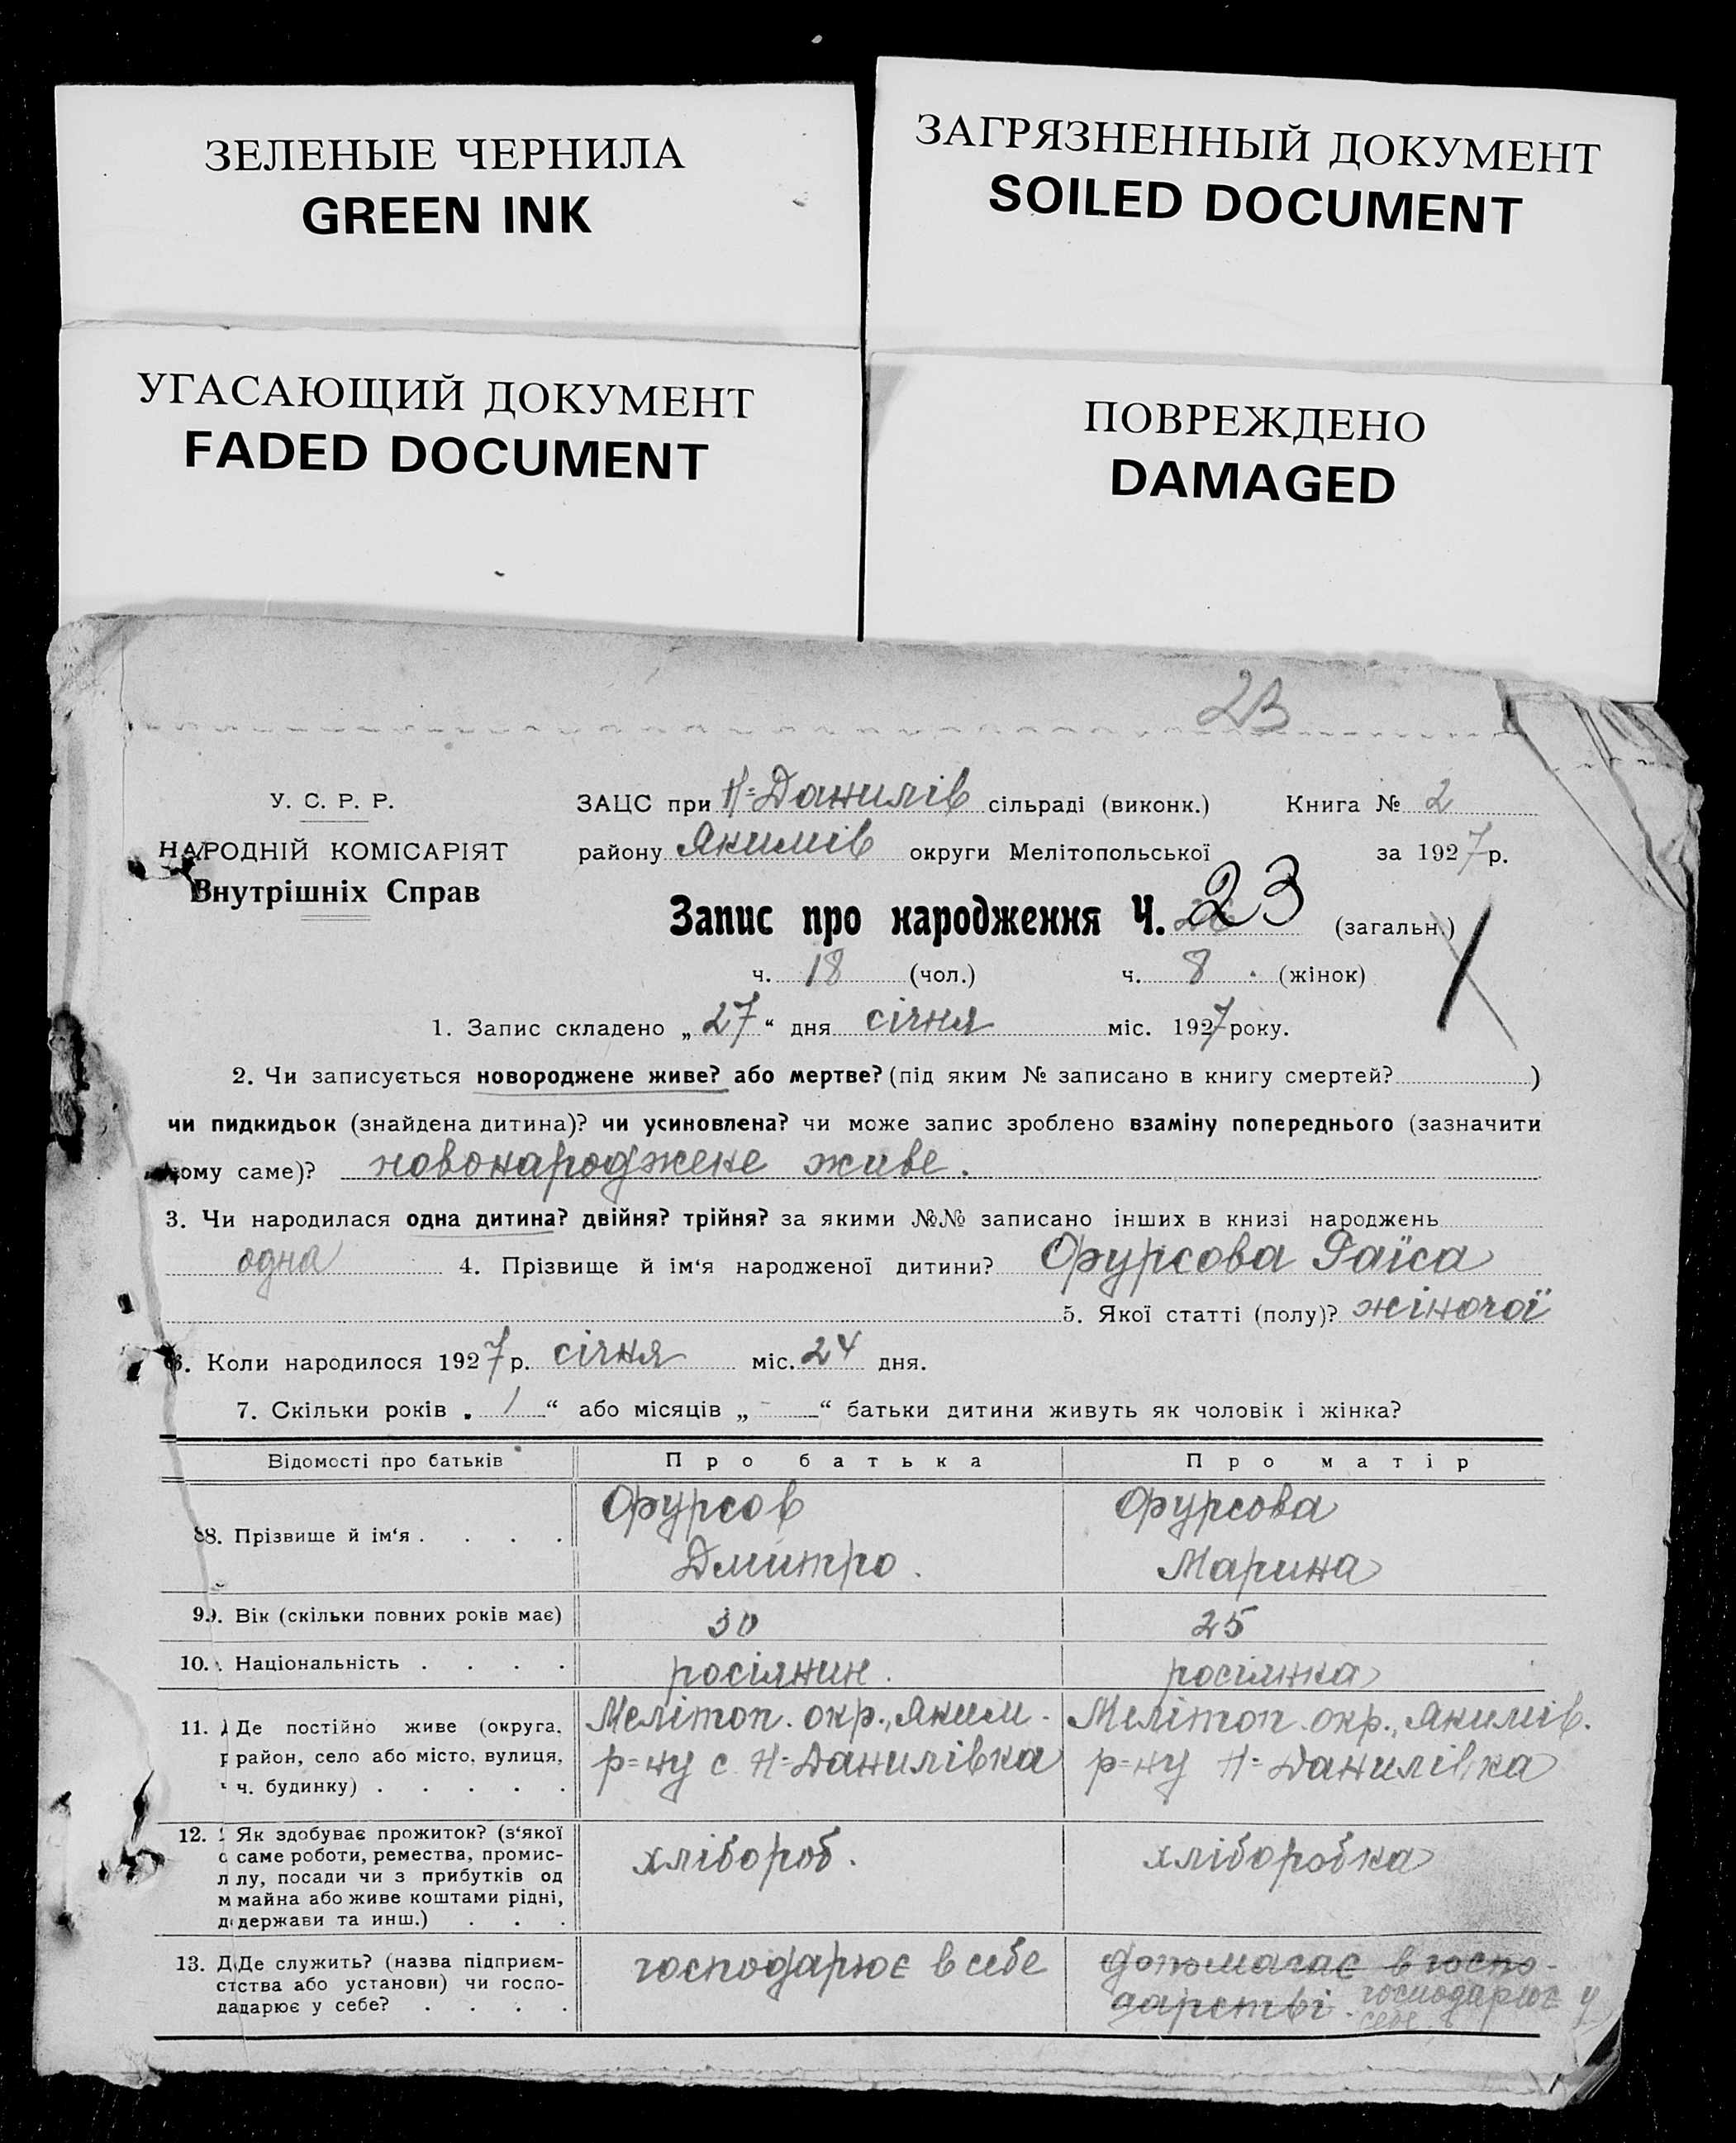 ЗЕЛЕНЫЕ ЧЕРНИЛА
GREEN INK
ЗАГРЯЗНЕННЫЙ ДОКУМЕНТ
SOILED DOCUMENT
УГАСАЮЩИЙ ДОКУМЕНТ
FADED DOCUMENT
ПОВРЕЖДЕНО
DAMAGED
23
У. С. Р. Р.
НАРОДНІЙ КОМІСАРІЯТ
Внутрішніх Справ
ЗАЦС при Н=Данилів сільраді (виконк.) Книга № 2
району Якимів округи Мелітопольської за 1927 р.
Запис про народження Ч. 23 (загальн.)
ч. 18 (чол.) ч. 8 (жінок)
1. Запис складено „ 27 “ дня січня міс. 1927 року.
2. Чи записується новороджене живе? або мертве? (під яким № записано в книгу смертей? )
чи пидкидьок (знайдена дитина)? чи усиновлена? чи може запис зроблено взаміну попереднього (зазначити
кому саме)? новонароджене живе.
3. Чи народилася одна дитина? двійня? трійня? за якими №№ записано інших в книзі народжень
одна 4. Прізвище й ім‘я народженої дитини? Фурсова Раїса
5. Якої статті (полу)? жіночої
6. Коли народилося 1927 р. січня міс. 24 дня.
7. Скільки років „ 1 “ або місяців „ - “ батьки дитини живуть як чоловік і жінка?
Відомості про батьків Про батька Про матір
8. Прізвище й ім‘я . . . . Фурсов Фурсова
Дмитро. Марина
9. Вік (скільки повних років має) 30 25
10. Національність . . . . росіянин. росіянка
11. Де постійно живе (округа, Мелітоп. окр., Яким. Мелітоп. окр., Якимів.
район, село або місто, вулиця, р=ну с. Н=Данилівка р=ну Н=Данилівка
ч. будинку) . . . . .
12. Як здобуває прожиток? (з‘якої
саме роботи, ремества, промис- хлібороб. хліборобка
лу, посади чи з прибутків од
майна або живе коштами рідні,
держави та инш.) . . .
13. Де служить? (назва підприєм- господарює в себе допомагає в госпо-
ства або установи) чи госпо- дарстві. господарює у
дарює у себе? . . . . себе